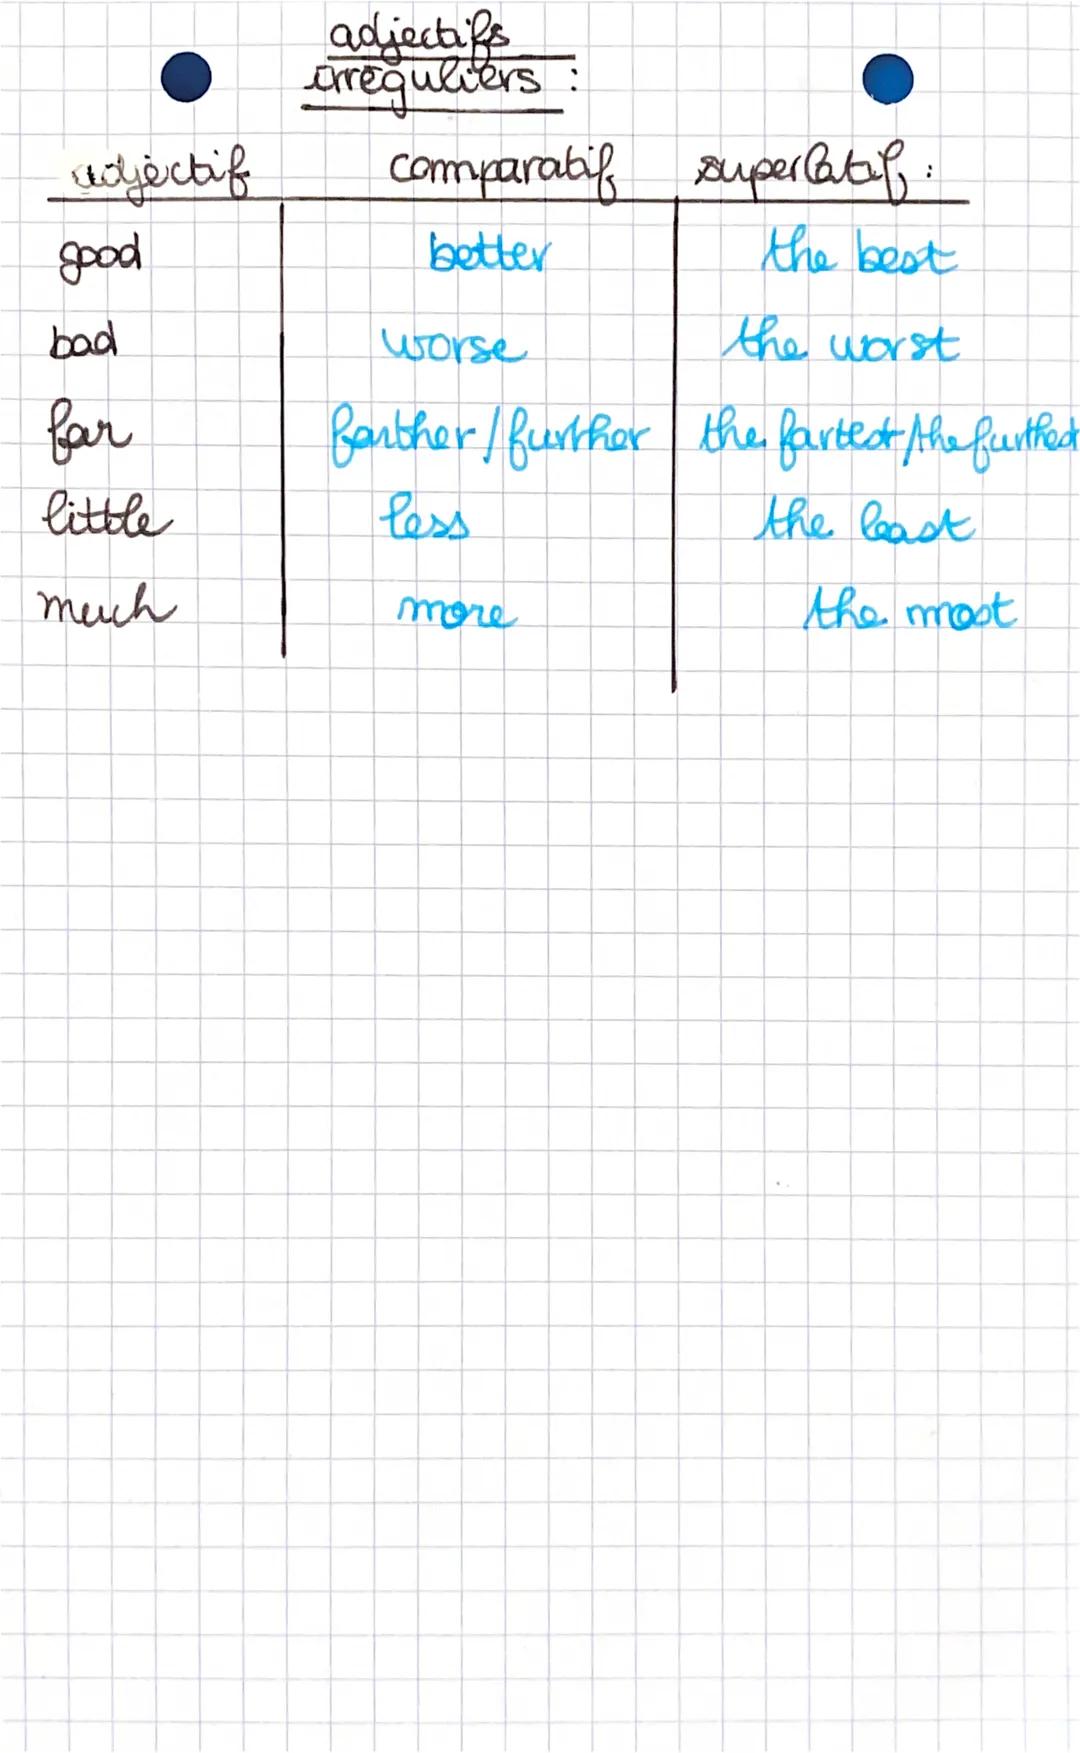 adjectifs
irréguliers :
adjectif comparatif superlatif :
good better the best
bad worse the worst
far farther / further the fartest / the furthest
little less the least
much more the most